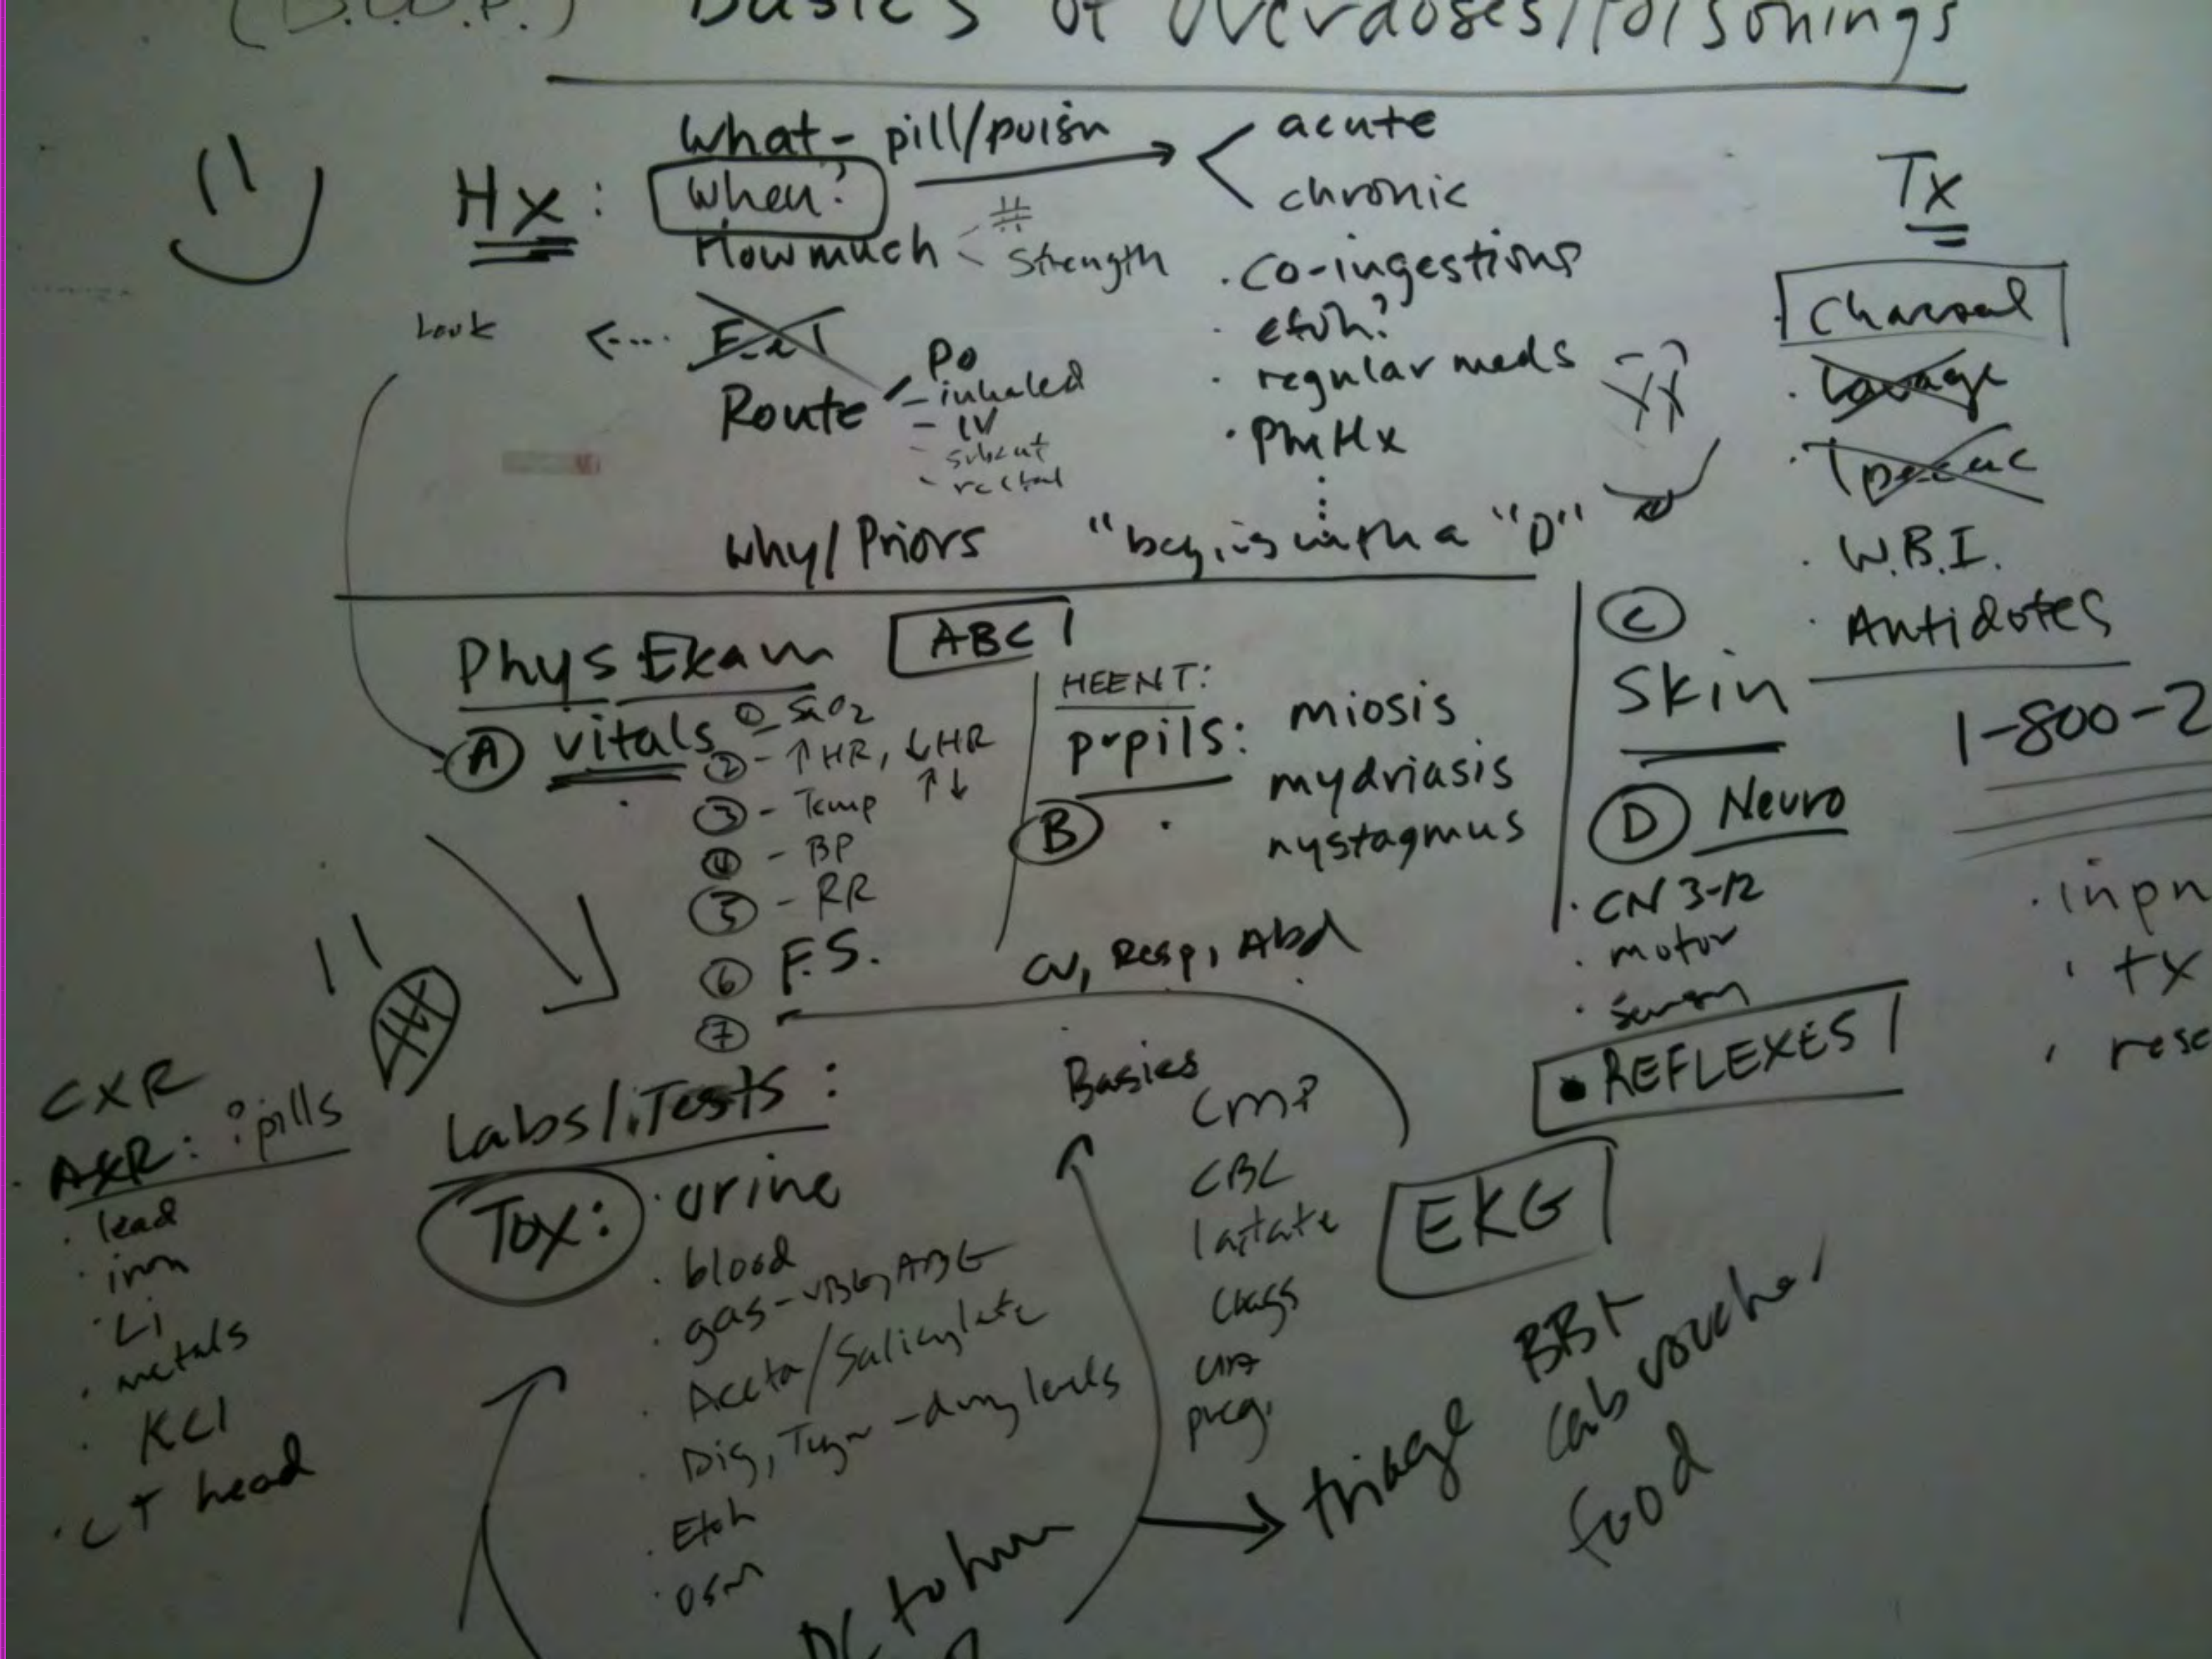 (B.O.P.) Basics of Overdoses/Poisonings
Hx:
What - pill/poisn
acute
chronic
When?
How much
#
Strength
Look
Route
PO
- inhaled
- IV
- subcut
- rectal
Why/Priors
· Co-ingestions
· etoh?
· regular meds
· PMHx
"begins with a "D"
Tx
Charcoal
· Lavage
· Ipecac
· W.B.I.
· Antidotes
1-800-2
· inpn
· tx
· rese
Phys Exam
ABC
A vitals
① - SaO2
② - ↑HR, ↓HR
③ - Temp ↑↓
④ - BP
⑤ - RR
⑥ F.S.
⑦
HEENT:
B pupils: miosis
mydriasis
nystagmus
CV, Resp, Abd
C
Skin
D Neuro
· CN 3-12
· motor
· REFLEXES
Labs/Tests:
Tox:
· urine
· blood
· gas - VBG, ABG
· Aceta/Salicylate
· Dig, - drug levels
· Etoh
· osm
Basics
CMP
CBC
lactate
Coags
UA
preg.
EKG
CXR
AXR: ?pills
· lead
· iron
· Li
· metals
· KCl
· CT head
DC to
triage
cab voucher
food